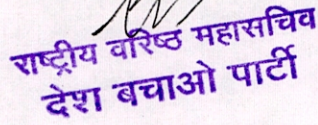 राष्ट्रीय वरिष्ठ महासचिव
देश बचाओ पार्टी